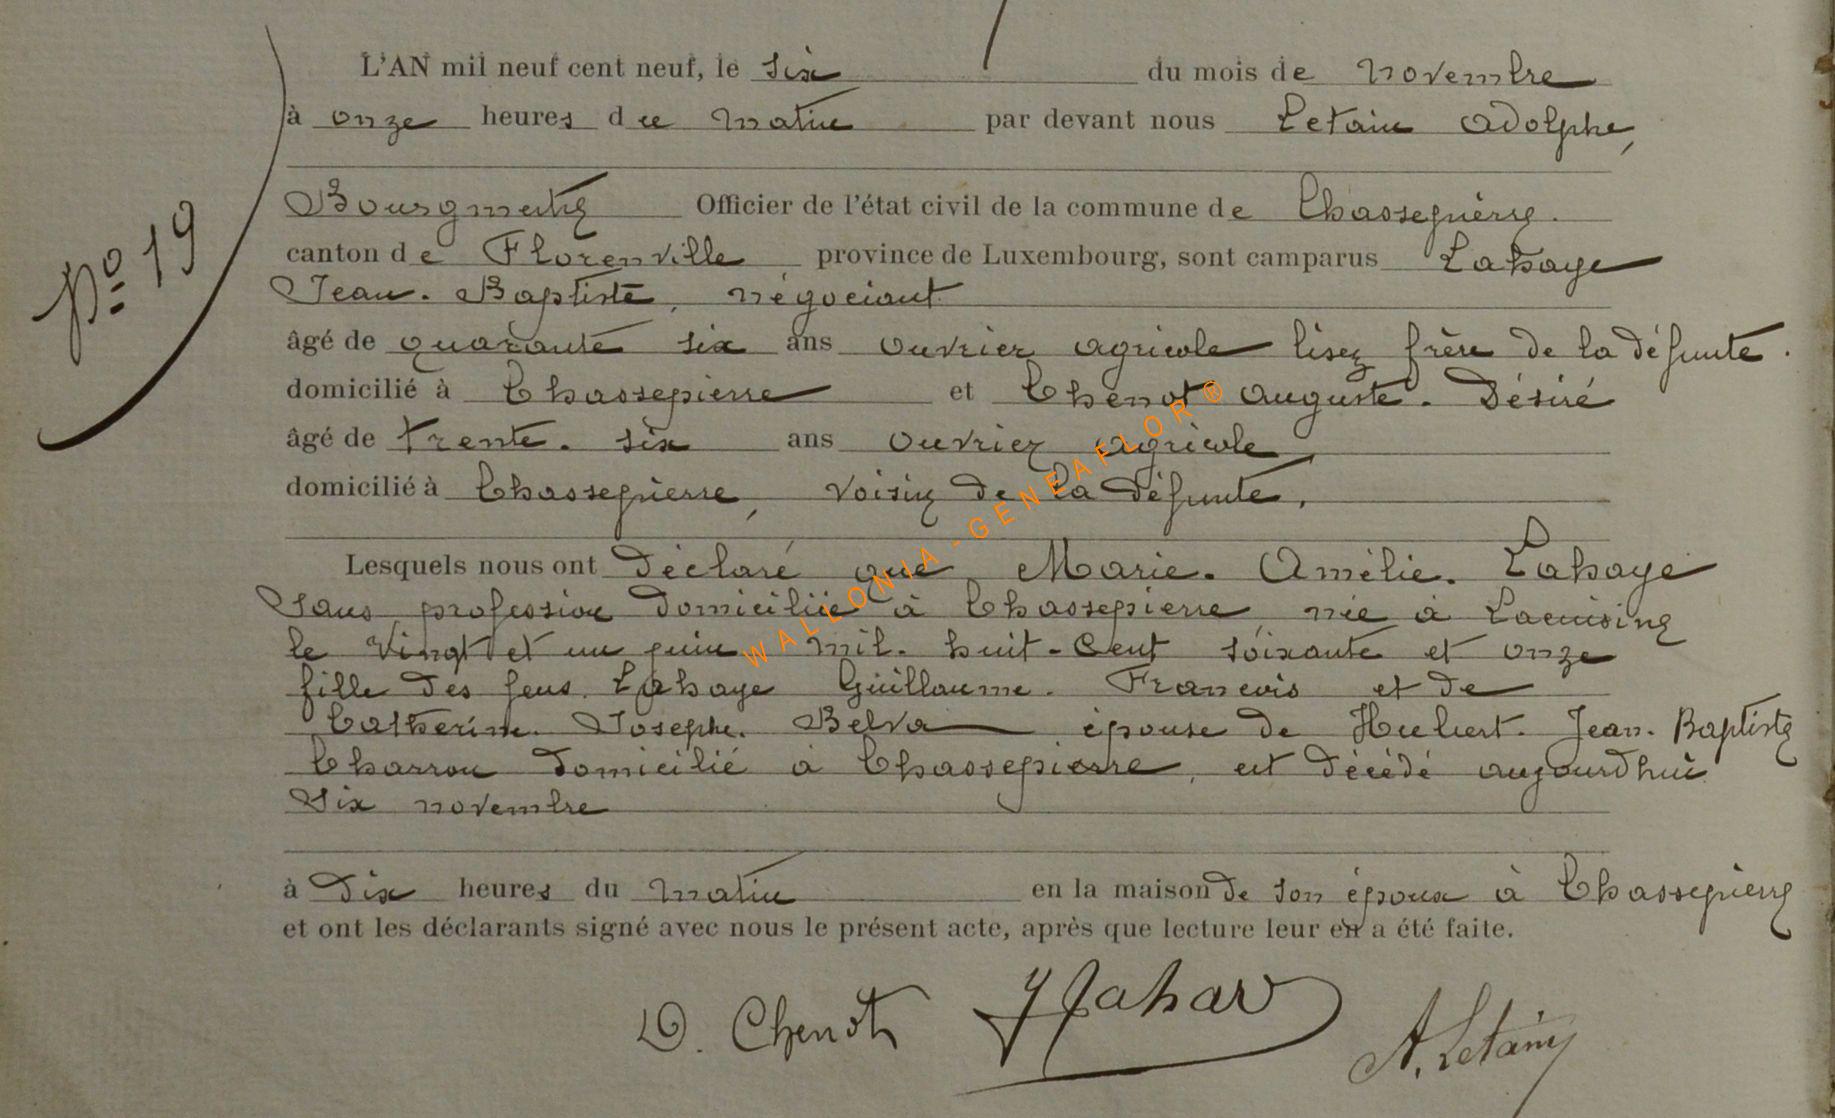 L'AN mil neuf cent neuf, le six du mois de novembre
à onze heures du matin par devant nous Letain Adolphe,
Bourgmestre Officier de l'état civil de la commune de Chassepierre.
canton de Florenville province de Luxembourg, sont camparus Lahaye
Jean-Baptiste, négociant
âgé de quarante six ans ouvrier agricole lisez frère de la défunte.
domicilié à Chassepierre et Chenot Auguste-Désiré
âgé de trente-six ans ouvrier agricole
domicilié à Chassepierre, voisin de la défunte.
Lesquels nous ont déclaré que Marie-Amélie-Lahaye
sans profession domiciliée à Chassepierre née à Lacuisine
le vingt et un juin mil-huit-cent soixante et onze
fille des feus Lahaye Guillaume-Francois et de
Catherine-Josephe-Belva épouse de Hubert-Jean-Baptiste
Charron domicilié à Chassepierre, est décédé aujourdhui
six novembre
à dix heures du matin en la maison de son époux à Chassepierre
et ont les déclarants signé avec nous le présent acte, après que lecture leur en a été faite.
N° 19
D. Chenot J Lahay A. Letain
WALLONIA-GENEAFLOR®